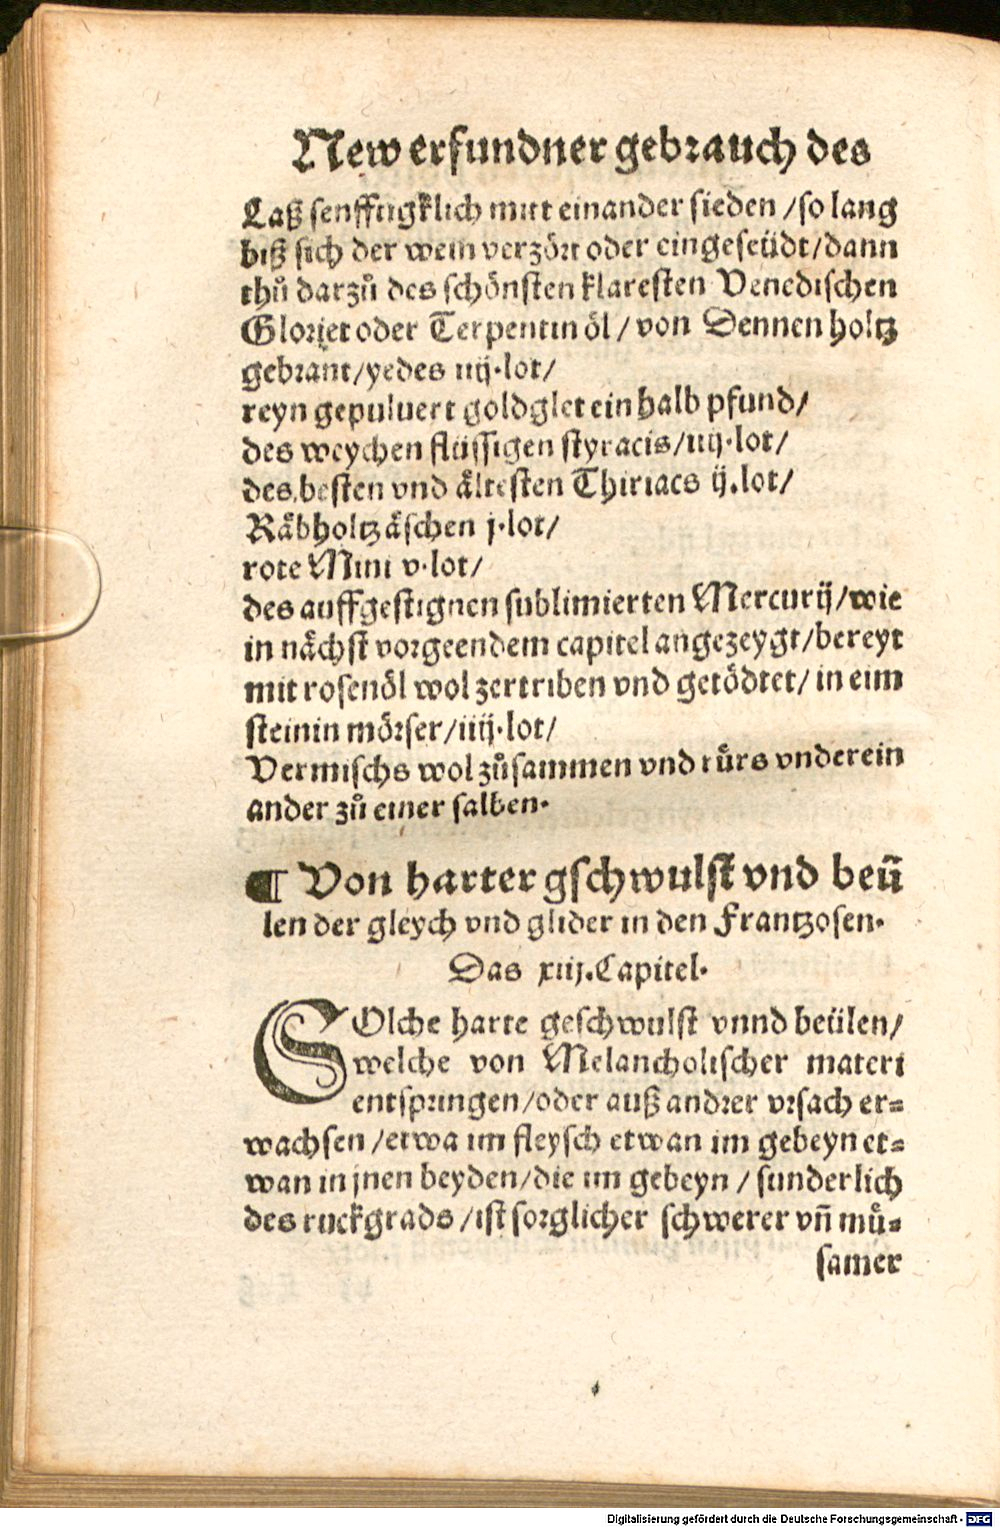 New erfundner gebrauch des
Laß senfftigklich mitt einander sieden /so lang
biß sich der wein verzört oder eingeseüdt/dann
thů darzů des schönsten klaresten Venedischen
Gloriet oder Terpentin öl / von Dennen holtz
gebrant/yedes iiij.lot/
reyn gepuluert goldglet ein halb pfund/
des weychen flüssigen styracis/iiij.lot/
des besten vnd åltesten Thiriacs ij.lot/
Råbholtz åschen j.lot/
rote Mini v.lot/
des auffgestignen sublimierten Mercurij/wie
in nåchst vorgeendem capitel angezeygt/bereyt
mit rosenöl wol zertriben vnd getödtet/ in eim
steinin mörser/iiij.lot/
Vermischs wol zůsammen vnd růrs vnderein
ander zů einer salben.
¶ Von harter gschwulst vnd beü̃
len der gleych vnd glider in den Frantzosen.
Das xiij.Capitel.
SOlche harte geschwulst vnnd beülen/
welche von Melancholischer materi
entspringen/oder auß andrer vrsach er=
wachsen /etwa im fleysch etwan im gebeyn et=
wan in jnen beyden/die im gebeyn / sunderlich
des ruckgrads /ist sorglicher schwerer vñ mů=
samer
Digitalisierung gefördert durch die Deutsche Forschungsgemeinschaft - DFG